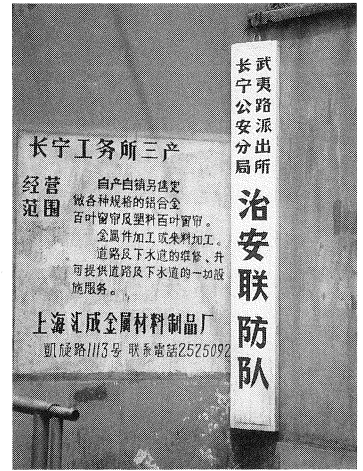 长宁工务所三产
经营
范围
自产自销另售定
做各种规格的铝合金
百叶窗帘及塑料百叶窗帘。
金属件加工或来料加工。
道路及下水道的维修、并
可提供道路及下水道的一切设
施服务。
上海汇成金属材料制品厂
凯旋路1113号 联系電話2525092
长宁公安分局
武夷路派出所
治安联防队